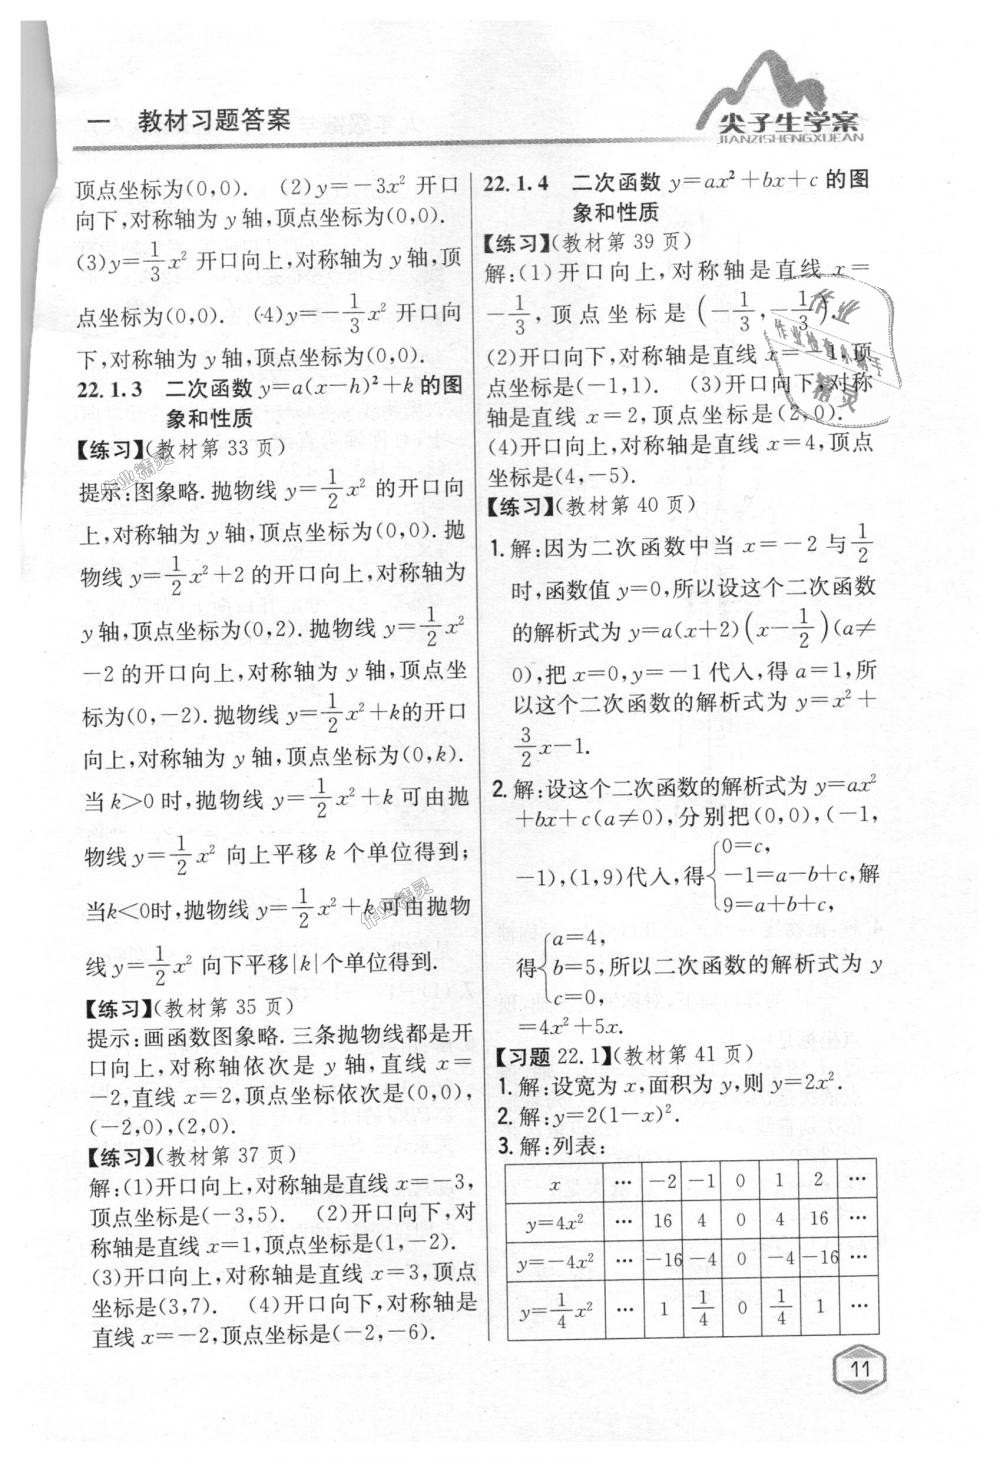 一 教材习题答案
尖子生学案
JIANZISHENGXUEAN
顶点坐标为(0,0). (2)y=-3x² 开口
向下,对称轴为 y 轴,顶点坐标为(0,0).
(3)y=1/3x² 开口向上,对称轴为 y 轴,顶
点坐标为(0,0). (4)y=-1/3x² 开口向
下,对称轴为 y 轴,顶点坐标为(0,0).
22.1.3 二次函数 y=a(x-h)²+k 的图
象和性质
【练习】(教材第 33 页)
提示:图象略.抛物线 y=1/2x² 的开口向
上,对称轴为 y 轴,顶点坐标为(0,0).抛
物线 y=1/2x²+2 的开口向上,对称轴为
y 轴,顶点坐标为(0,2).抛物线 y=1/2x²
-2 的开口向上,对称轴为 y 轴,顶点坐
标为(0,-2).抛物线 y=1/2x²+k的开口
向上,对称轴为 y 轴,顶点坐标为(0,k).
当 k>0 时,抛物线 y=1/2x²+k 可由抛
物线 y=1/2x² 向上平移 k 个单位得到;
当k<0时,抛物线 y=1/2x²+k 可由抛物
线 y=1/2x² 向下平移|k|个单位得到.
【练习】(教材第 35 页)
提示:画函数图象略.三条抛物线都是开
口向上,对称轴依次是 y 轴,直线 x=
-2,直线 x=2,顶点坐标依次是(0,0),
(-2,0),(2,0).
【练习】(教材第 37 页)
解:(1)开口向上,对称轴是直线 x=-3,
顶点坐标是(-3,5). (2)开口向下,对
称轴是直线 x=1,顶点坐标是(1,-2).
(3)开口向上,对称轴是直线 x=3,顶点
坐标是(3,7). (4)开口向下,对称轴是
直线 x=-2,顶点坐标是(-2,-6).
22.1.4 二次函数 y=ax²+bx+c 的图
象和性质
【练习】(教材第 39 页)
解:(1)开口向上,对称轴是直线 x=
-1/3,顶点坐标是(-1/3,-1/3).
(2)开口向下,对称轴是直线 x=-1,顶
点坐标是(-1,1). (3)开口向下,对称
轴是直线 x=2,顶点坐标是(2,0).
(4)开口向上,对称轴是直线 x=4,顶点
坐标是(4,-5).
【练习】(教材第 40 页)
1.解:因为二次函数中当 x=-2 与 1/2
时,函数值 y=0,所以设这个二次函数
的解析式为 y=a(x+2)(x-1/2)(a≠
0),把 x=0,y=-1 代入,得 a=1,所
以这个二次函数的解析式为 y=x²+
3/2x-1.
2.解:设这个二次函数的解析式为 y=ax²
+bx+c(a≠0),分别把(0,0),(-1,
-1),(1,9)代入,得{0=c,
-1=a-b+c,解
9=a+b+c,
得{a=4,
b=5,所以二次函数的解析式为 y
c=0,
=4x²+5x.
【习题 22.1】(教材第 41 页)
1.解:设宽为 x,面积为 y,则 y=2x².
2.解:y=2(1-x)².
3.解:列表:
x … -2 -1 0 1 2 …
y=4x² … 16 4 0 4 16 …
y=-4x² … -16 -4 0 -4 -16 …
y=1/4x² … 1 1/4 0 1/4 1 …
11
作业
精灵
作业精灵
作业精灵